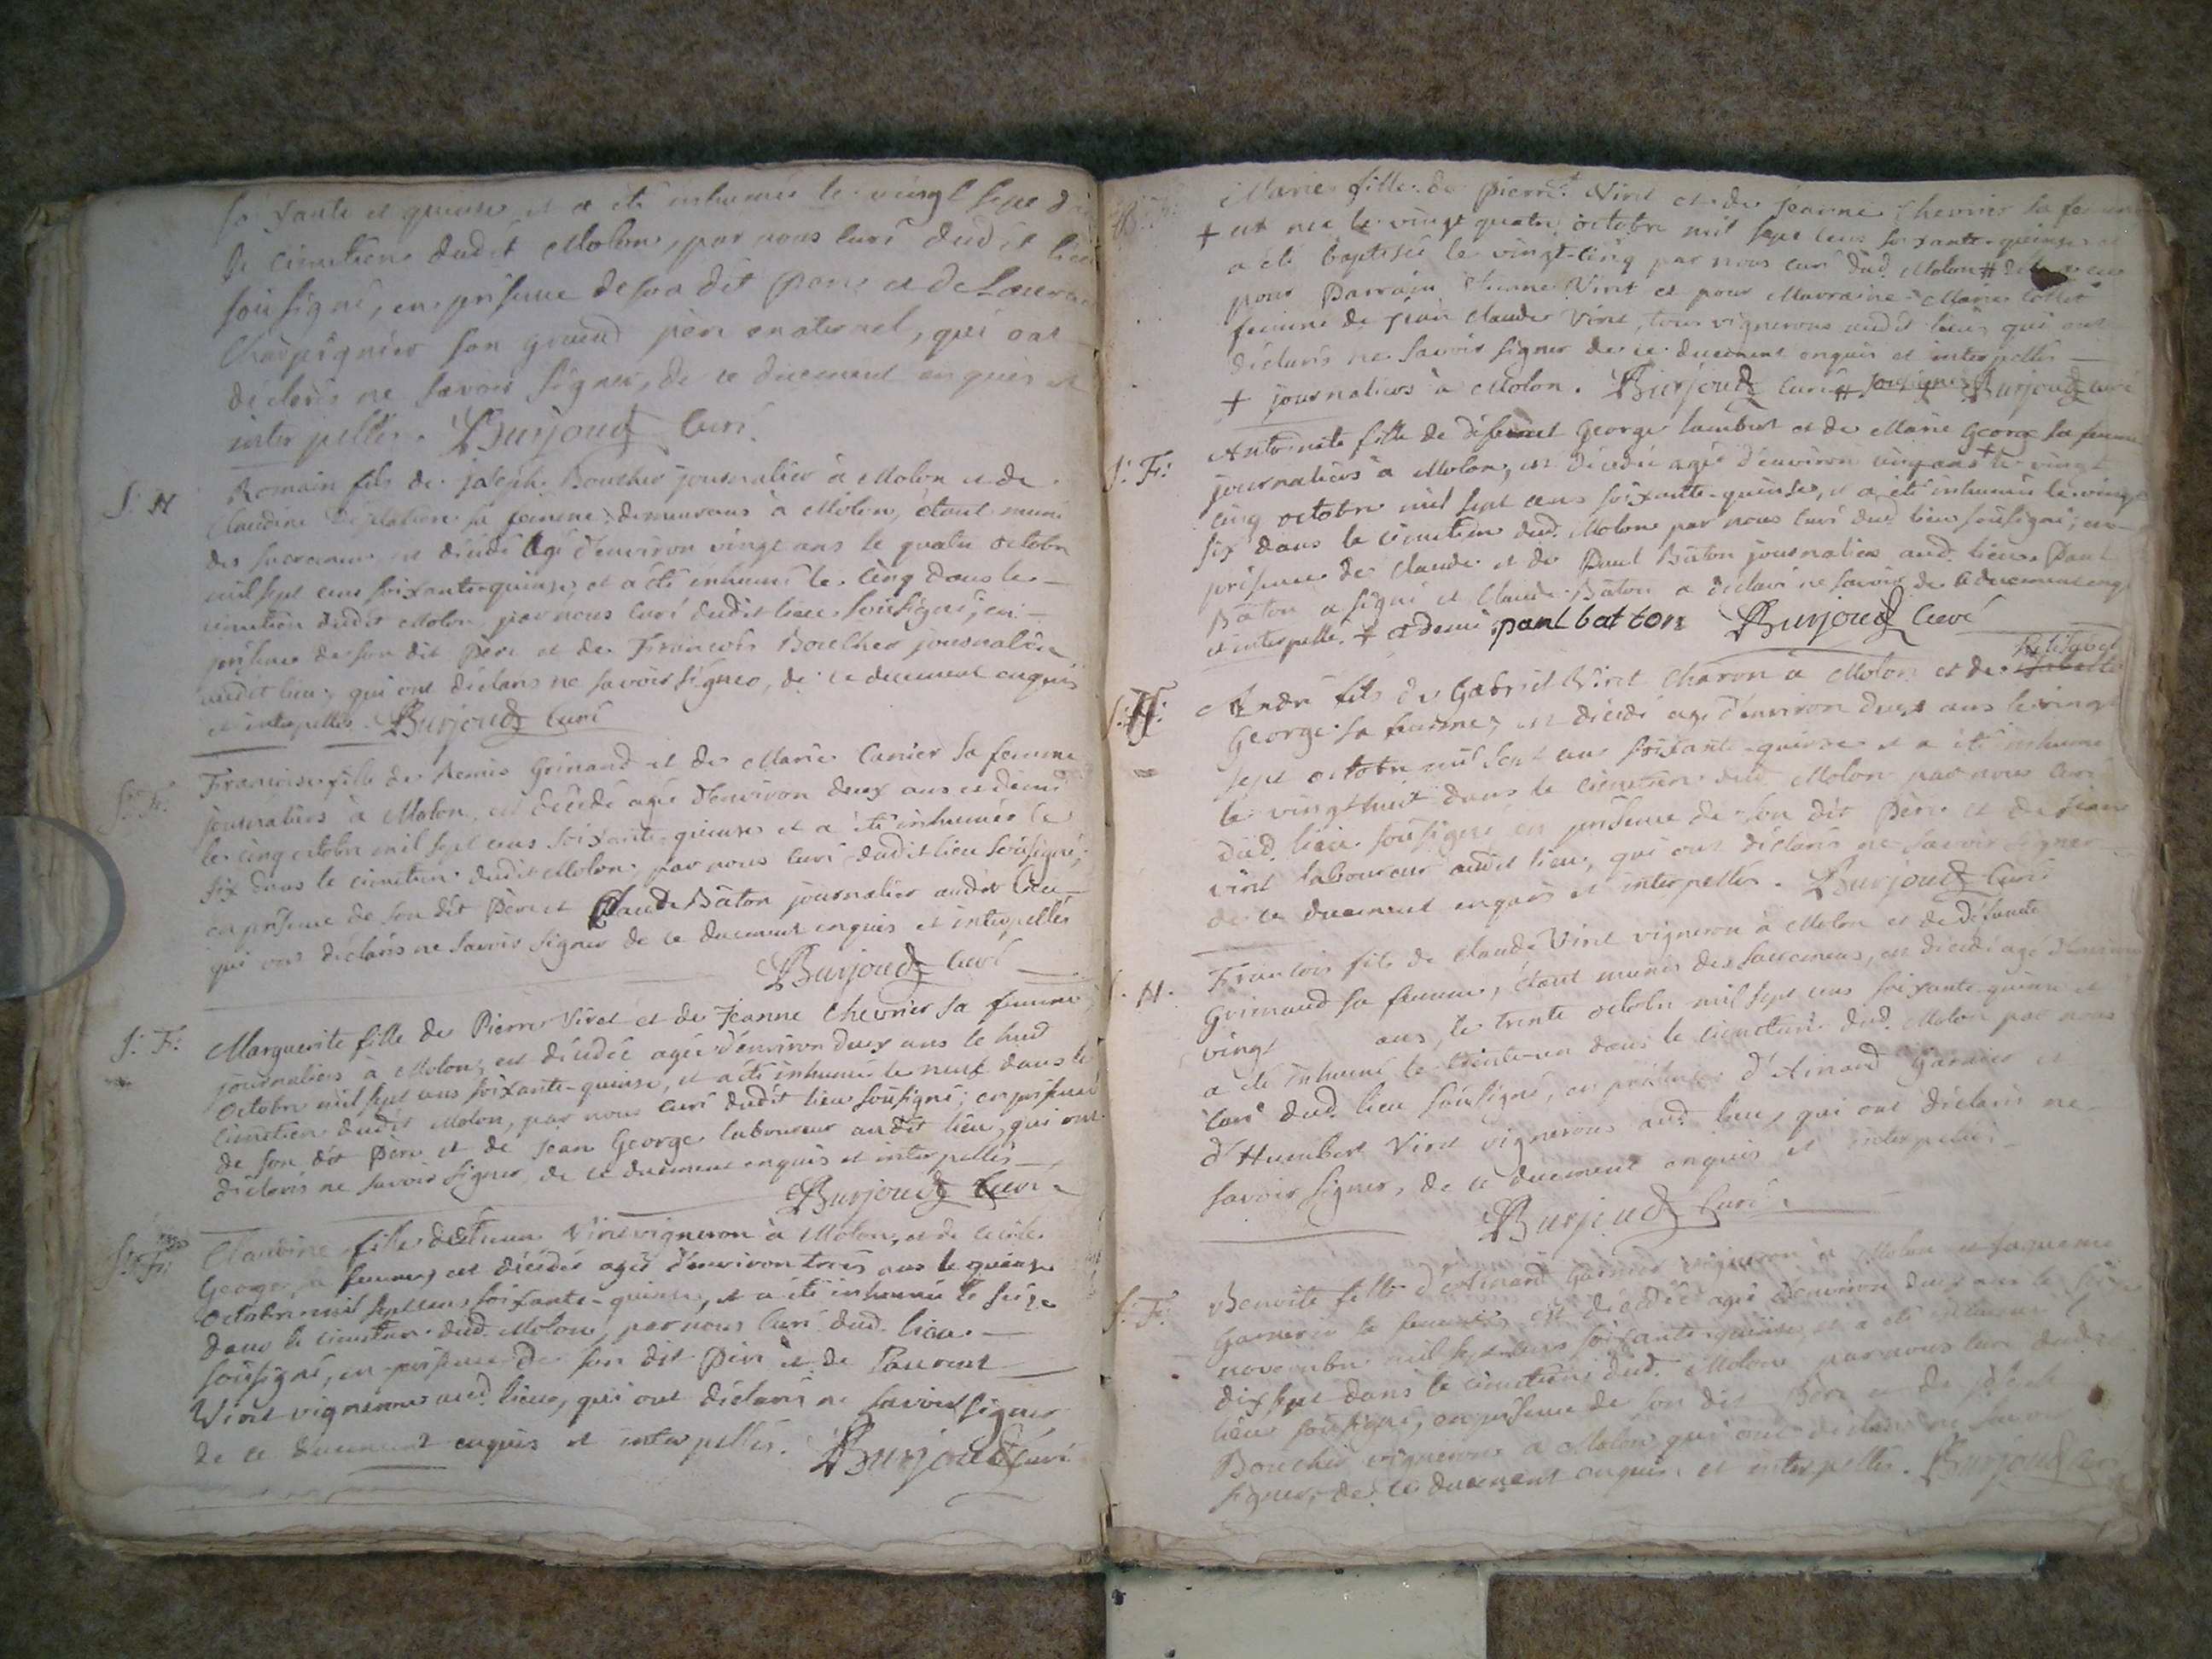 soixante et quinse et a eté inhumée le vingt sept dans
le cimetiere dudit Molon, par nous curé dudit lieu
sousigné, en presence de son dit Pere et de Laurent
Charpignier son grand pere maternel, qui ont
déclarés ne savoir signer, de ce duement enquis et
interpellés. Burjoud Curé.
S: H Romain fils de joseph Boucher journalier à Molon et de
Claudine sa femme, demeurans à Molon, étant muni
des sacremens est décédé agé d'environ vingt ans le quatre octobre
mil sept cens soixante-quinse, et a été inhumé le cinq dans le
cimetiere dudit Molon, par nous curé dudit lieu sousigné, en
presence de son dit Pere et de Francois Boucher journalier
audit lieu, qui ont déclarés ne savoir signer, de ce duement enquis
et interpellés. Burjoud Curé
S: F: Francoise fille de Remis Grinand et de Marie Canier sa femme
journaliers à Molon, est décédé agée d'environ deux ans et demi
le cinq octobre mil sept cens soixante-quinse et a été inhumée le
six dans le cimetiere dudit Molon, par nous curé dudit lieu sousigné,
en presence de son dit Pere et Claude Bâton journalier audit lieu
qui ont déclarés ne savoir signer de ce duement enquis et interpellés
Burjoud Curé
S: F: Marguerite fille de Pierre Viret et de Jeanne Chevrier sa femme
journaliers à Molon, est décédée agée d'environ deux ans le huit
octobre mil sept cens soixante-quinse, et a été inhumée le neuf dans le
cimetiere dudit Molon, par nous curé dudit lieu sousigné; en presence
de son dit Pere et de Jean George laboureur audit lieu, qui ont
déclarés ne savoir signer, de ce duement enquis et interpellés
Burjoud Curé
S: F: Claudine fille d'Etienne Viret vigneron à Molon, et de Cecile
George sa femme, est décédée agée d'environ trois ans le quinse
octobre mil sept cens soixante-quinse, et a été inhumée le seize
dans le cimetiere dud. Molon, par nous curé dud. lieu
sousigné, en presence de son dit Pere et de Laurent
Viret vignerons aud. lieu, qui ont déclarés ne savoir signer
de ce duement enquis et interpellés. Burjoud Curé
Marie fille de Pierre Viret et de jeanne Chevrier sa femme
+ est née le vingt quatre octobre mil sept cens soixante-quinse et
a été baptisée le vingt-cinq par nous curé dud. Molon #
pour Parrain Viret et pour Marraine Marie Collet
femme de jean Claude Viret, tous vignerons audit lieu, qui ont
déclarés ne savoir signer de ce duement enquis et interpellés
+ journaliers à Molon. Burjoud Curé # sousigné Burjoud Curé
S: F: Antoinete fille de défunct George Lambert et de Marie George sa femme
journaliers à Molon, est décédée agée d'environ cinq ans + le vingt
cinq octobre mil sept cens soixante-quinse, et a été inhumée le vingt
six dans le cimetiere dud. Molon par nous curé dud. lieu sousigné, en
presence de Claude et de Paul Bâton journaliers aud. lieu. Paul
Bâton a signé et Claude Bâton a déclaré ne savoir de ce duement enquis
et interpellé. + et demi paul batton Burjoud Curé
S: H: André fils de Gabriel Viret Charon à Molon et de
George sa femme, est décédé agé d'environ deux ans le vingt
sept octobre mil sept cens soixante-quinse et a été inhumé
le vingt huit dans le cimetiere dud. Molon par nous curé
dud. lieu sousigné en presence de son dit Pere et de jean
viret laboureur audit lieu, qui ont déclarés ne savoir signer
de ce duement enquis et interpellés. Burjoud Curé
S: H. Francois fils de Claude Viret vigneron à Molon et de défuncte
Grimaud sa femme, étant munis des sacremens, est décédé agé d'environ
vingt ans, le trente octobre mil sept cens soixante-quinse et
a été inhumé le trente-un dans le cimetiere dud. Molon par nous
curé dud. lieu sousigné, en présence d'Ainard Garnier et
d'Humbert Viret vignerons aud. lieu, qui ont déclarés ne
savoir signer, de ce duement enquis et interpellés
Burjoud Curé
S: F: Benoite fille d'Ainard Garnier vigneron à Molon et
Garnerin sa femme, est décédée agée d'environ deux ans le seize
novembre mil sept cens soixante-quinse, et a été inhumée le
dix sept dans le cimetiere dud. Molon par nous curé dudit
lieu sousigné, en presence de son dit Pere et de
Boucher vignerons à Molon qui ont déclarés ne savoir
signer, de ce duement enquis et interpellés. Burjoud Curé